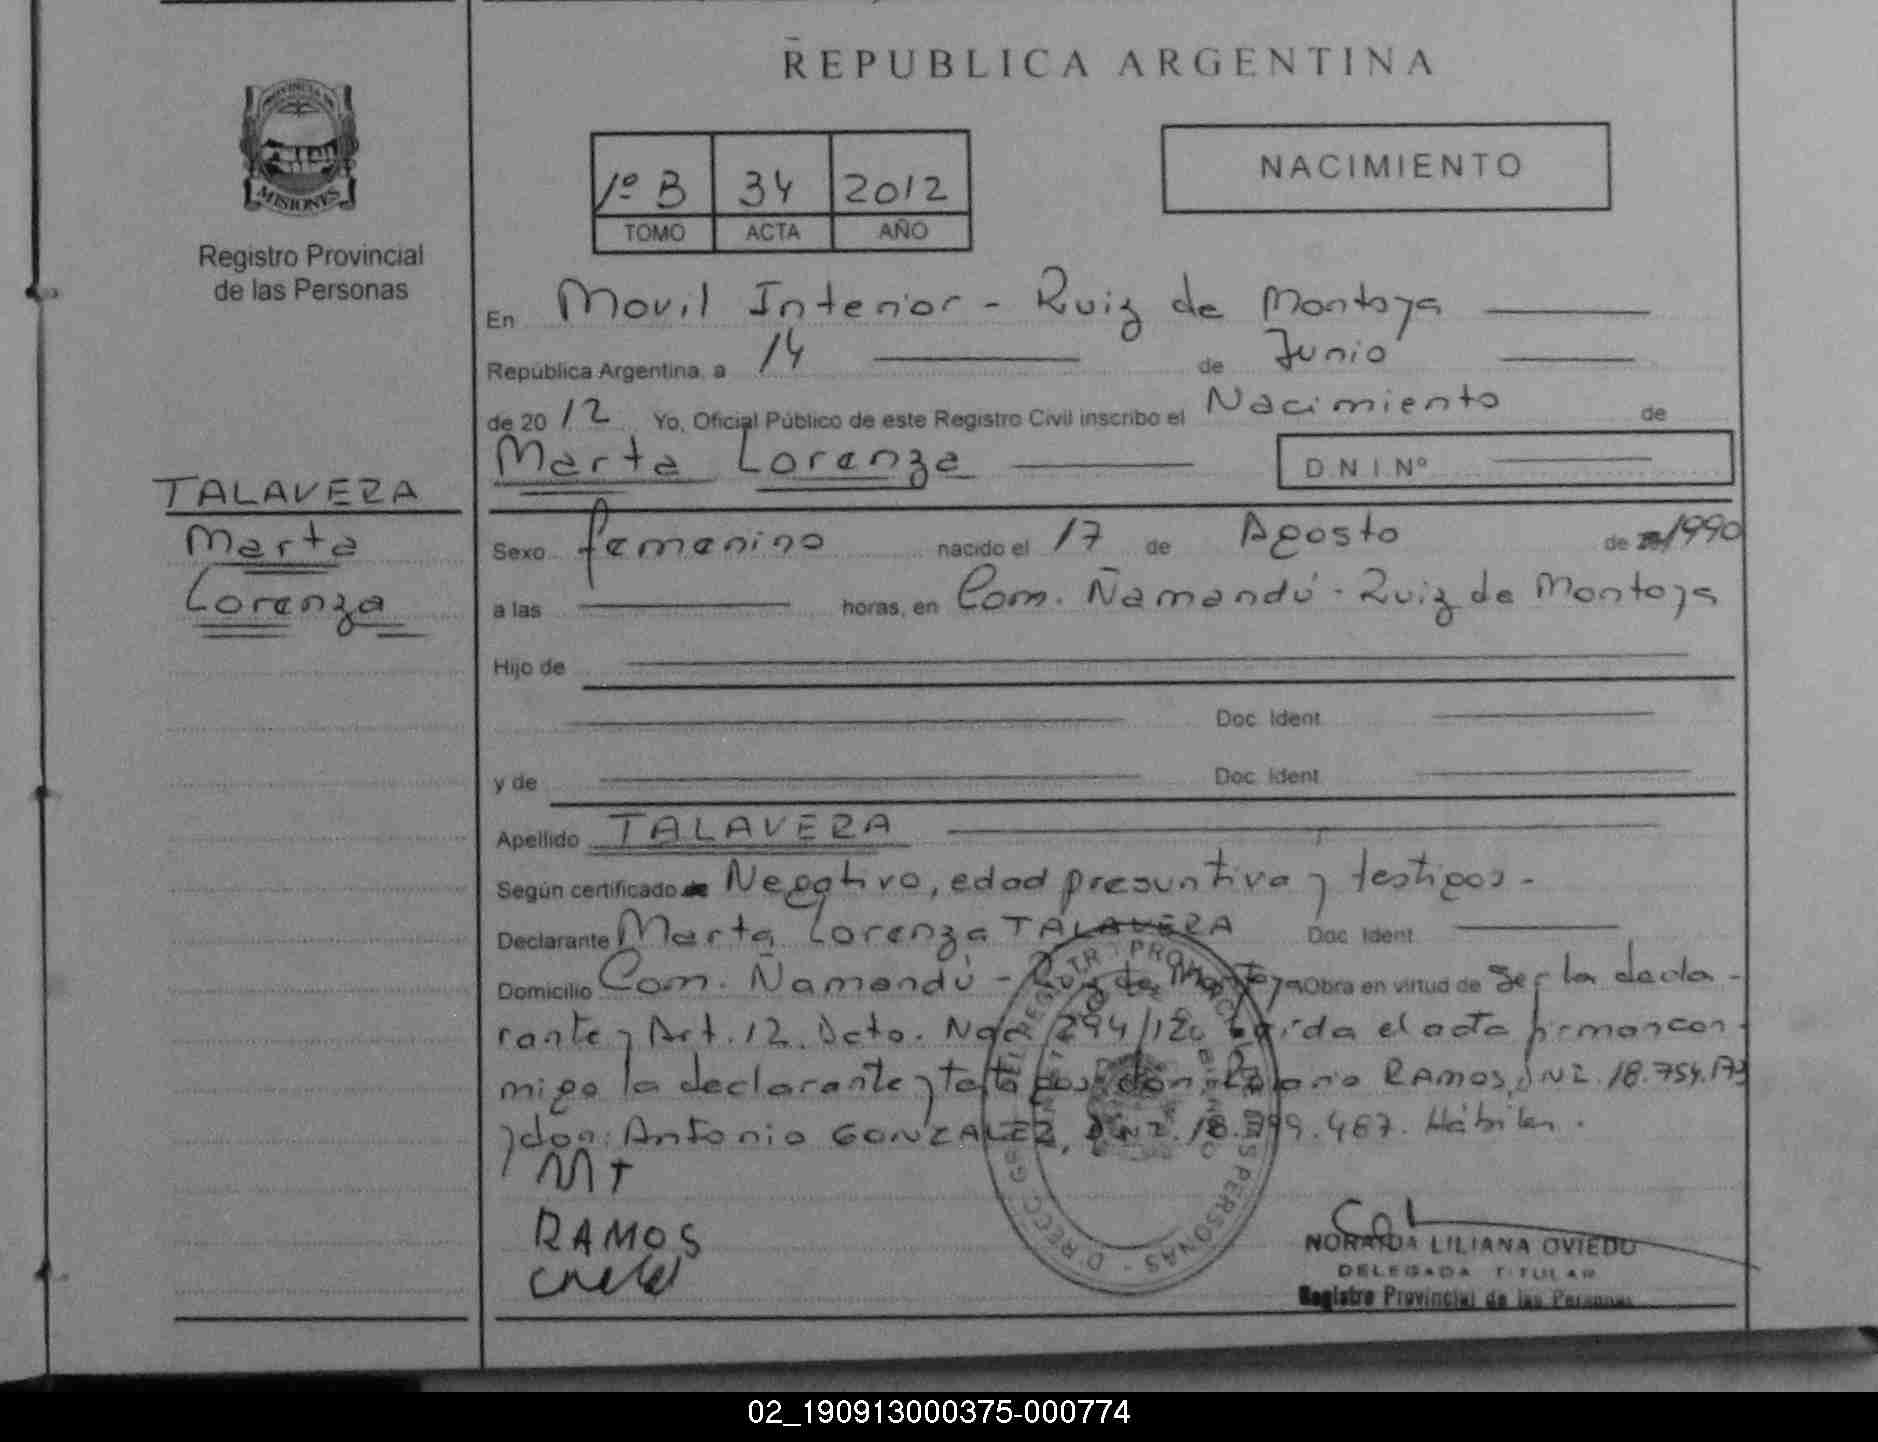 REPUBLICA ARGENTINA
PROVINCIA DE
MISIONES
Registro Provincial
de las Personas
1º B 34 2012
TOMO ACTA AÑO
NACIMIENTO
En Movil Interior - Ruiz de Montoya
República Argentina, a 14 de Junio
de 2012 Yo, Oficial Público de este Registro Civil inscribo el Nacimiento de
Marta Lorenza D.N.I. Nº
TALAVERA
Marta
Lorenza
Sexo femenino nacido el 17 de Agosto de 1990
a las horas, en Com. Ñamandú - Ruiz de Montoya
Hijo de
Doc. Ident.
y de Doc. Ident.
Apellido TALAVERA
Según certificado Negativo, edad presuntiva y testigos.-
Declarante Marta Lorenza TALAVERA Doc. Ident.
Domicilio Com. Ñamandú - Ruiz de Montoya Obra en virtud de ser la decla-
rante y Art. 12. Dcto. Nac. 294/12. el acta firman con-
migo la declarante y don RAMOS, DNI. 18.754.173
y don: Antonio GONZALEZ, DNI. 18. 467. Hábiles.
MT
RAMOS
NORAIDA LILIANA OVIEDO
DELEGADA TITULAR
Registro Provincial de las Personas
02_190913000375-000774